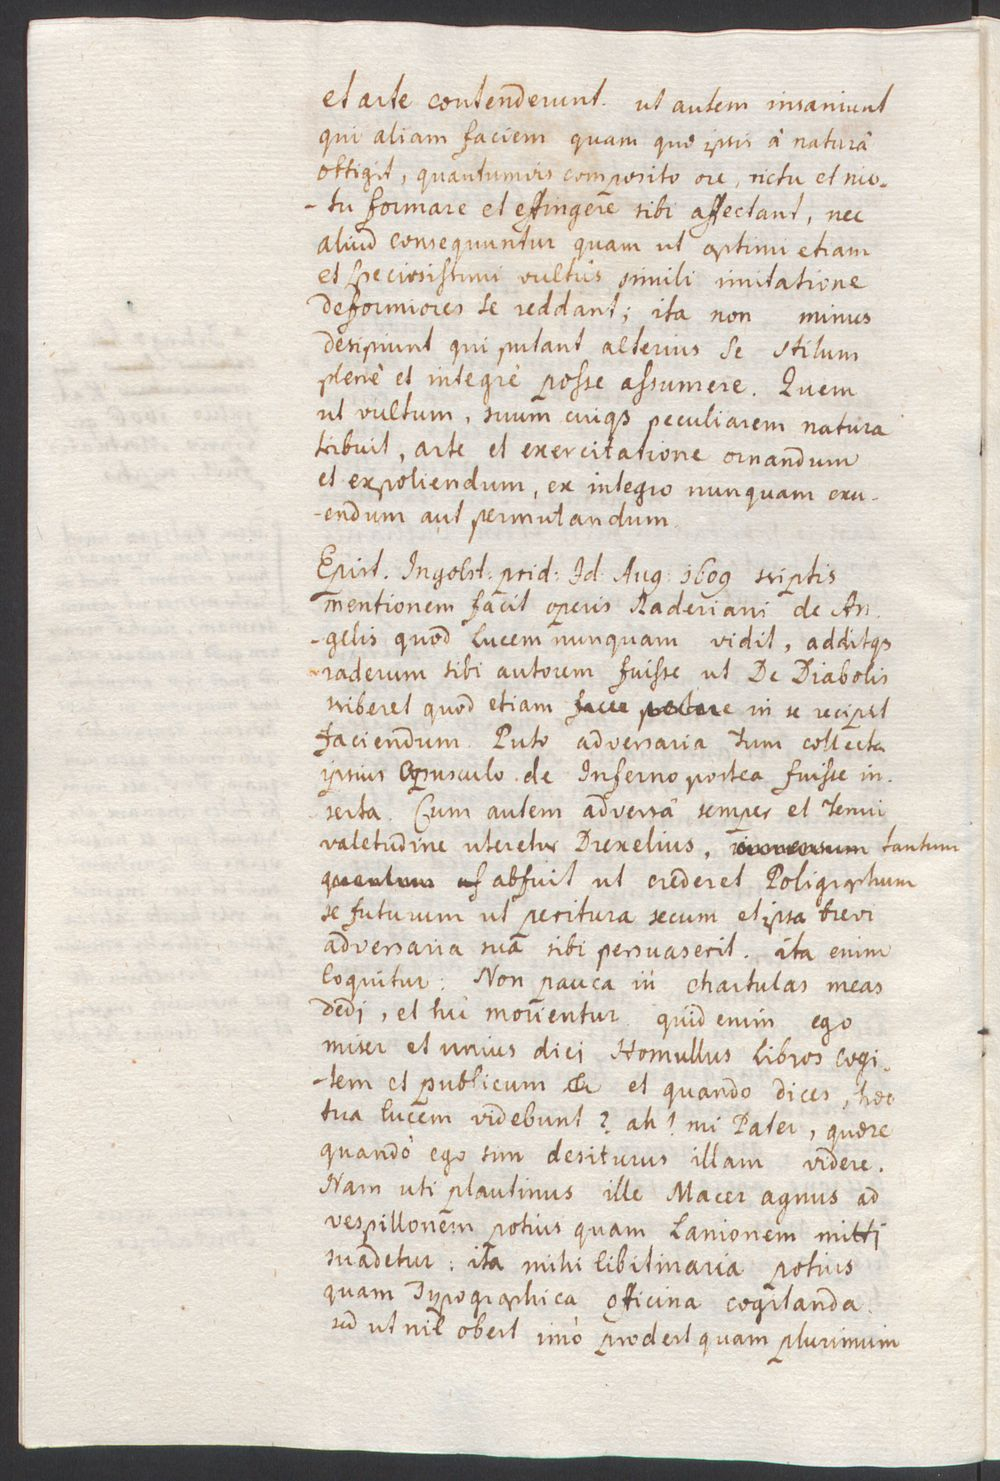 et arte contenderunt. ut autem insaniunt
qui aliam faciem quam quę ipsis â naturâ
obtigit, quantumvis composito ore, rictu et mo-
-tu formare et effingere sibi affectant, nec
aliud consequuntur quam ut optimi etiam
et speciosissimi vultûs simili imitatione
deformiores se reddant; ita non minus
desipiunt qui putant alterius se stilum
plenè et integrè posse assumere. Quem
ut vultum, suum cuiqs peculiarem natura
tribuit, arte et exercitatione ornandum
et expoliendum, ex integro nunquam exu-
-endum aut permutandum.
Epist. Ingolst. prid: Id: Aug: 1609 scriptis
mentionem facit operis Raderiani de An-
-gelis quod Lucem nunquam vidit, additqs
raderum sibi autorem fuisse ut De Diabolis
scriberet quod etiam in se recipit
faciendum. Puto adversaria tum collecta
ipsius Opusculo de Inferno postea fuisse in-
serta. Cum autem adversâ semper et tenui
valetudine uteretur Drexelius, tantum
abfuit ut crederet Poligraphum
se futurum ut peritura secum et ipsa brevi
adversaria sua sibi persuaserit. ita enim
loquitur: Non pauca in chartulas meas
dedi, et hîc morientur quid enim ego
miser et unius diei Homullus Libros cogi-
-tem et publicum et quando dices, hæc
tua lucem videbunt? ah! mi Pater, quære
quando ego sim desiturus illam videre.
Nam uti plautinus ille Macer agnus ad
vespillonem potius quam Lanionem mitti
suadetur: ita mihi libitinaria potius
quam Typographica officina cogitanda.
sed ut nil obest imò prodest quam plurimum